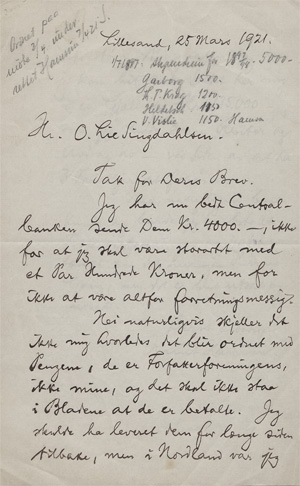 Lillesand, 25 Mars 1921.
5000-
Garborg 1500-
1200-
1150
V. Vislie 1150. Hamsun
Hr. O. Lie Singdahlsen.
Tak for Deres Brev.
Jeg har nu bedt Central-
banken sende Dem Kr. 4000.—, ikke
for at jeg skal være starartet med
et Par Hundrede Kroner, men for
ikke at være altfor forretningsmessig.
Nei naturligvis skjeller det
ikke mig hvorledes det blir ordnet med
Pengene, de er Forfatterforeningens,
ikke mine, og det skal ikke staa
i Bladene at de er betalte. Jeg
skulde ha leveret dem for længe siden
tilbake, men i Nordland var jeg